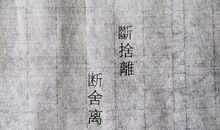 斷捨離
断舍离